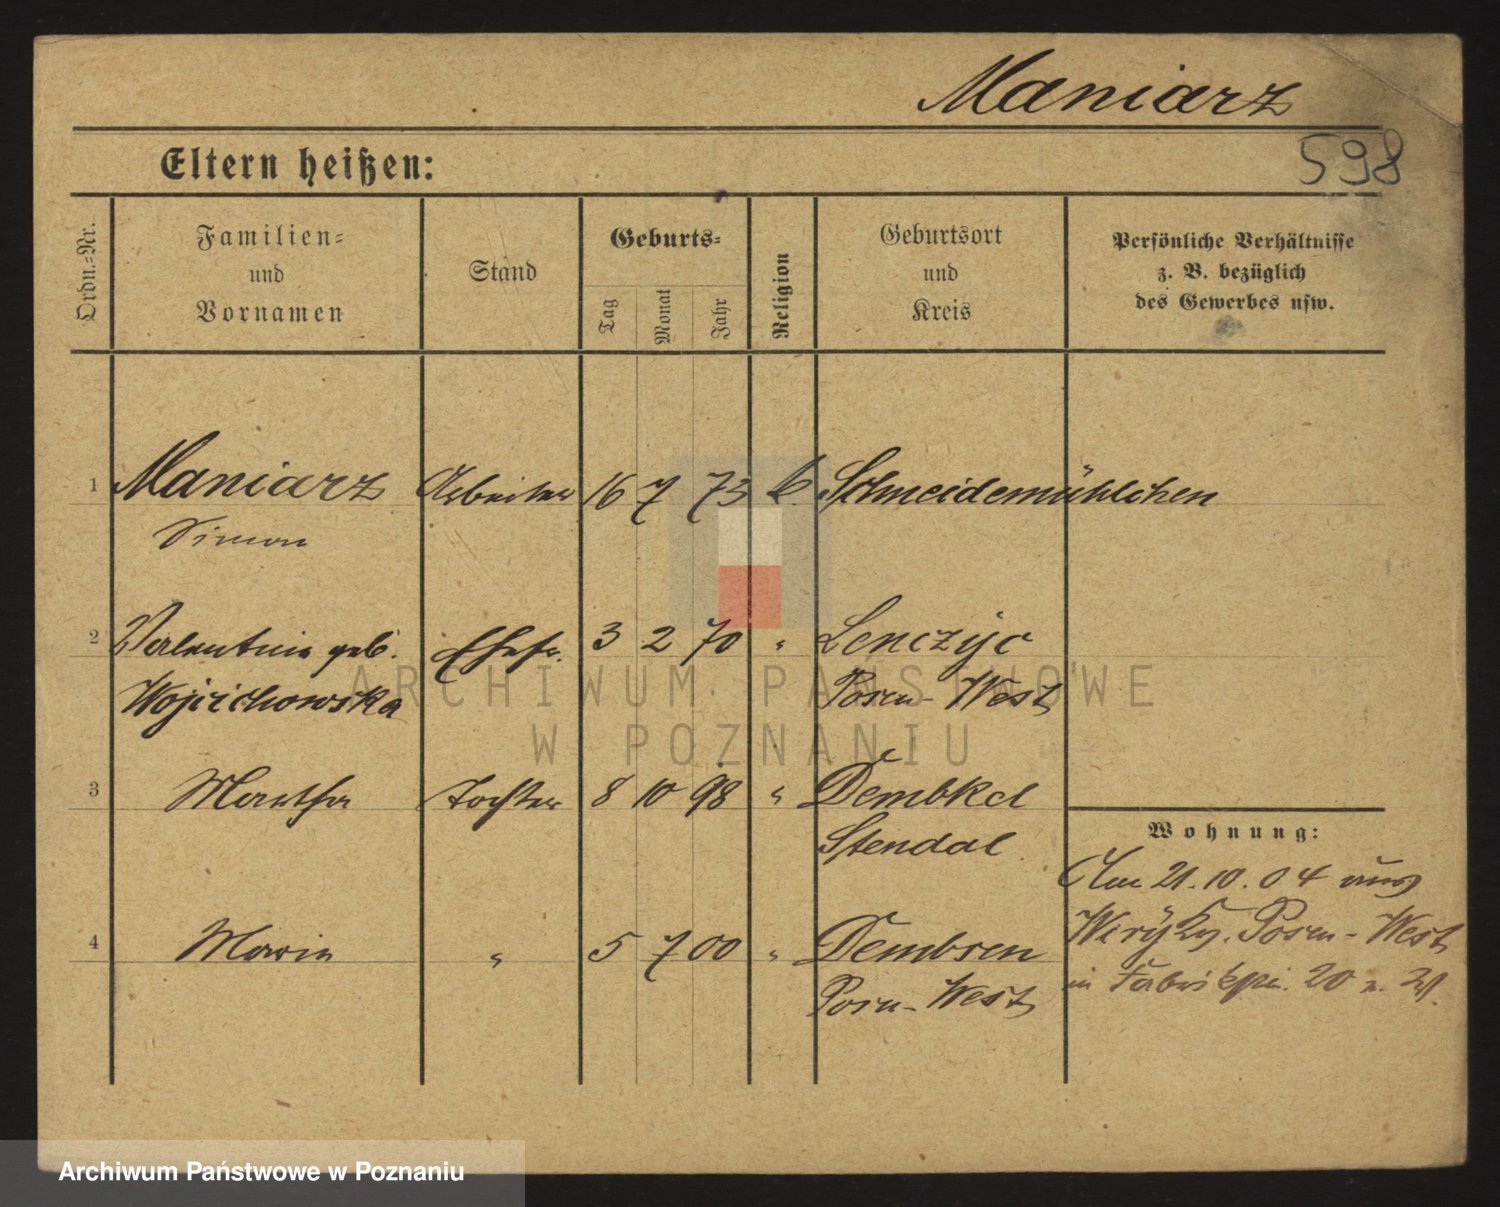 Maniarz
598
Eltern heißen:
Ordn.-Nr.
Familien-
und
Vornamen
Stand
Geburts-
Tag
Monat
Jahr
Religion
Geburtsort
und
Kreis
Persönliche Verhältnisse
z. B. bezüglich
des Gewerbes usw.
1 Maniarz Arbeiter 16 7 73 k. Schneidemühlchen
Simon
2 Valentine geb. Ehefr. 3 2 70 " Lenczyc
Wojcichowska Posen-West
3 Martha Tochter 8 10 98 " Dembkel
Stendal
Wohnung:
Am 21.10.04 aus
4 Maria " 5 7 00 " Dembsen
Posen-West
Posen-West
in Fabrikstr. 20
ARCHIWUM PAŃSTWOWE
W POZNANIU
Archiwum Państwowe w Poznaniu